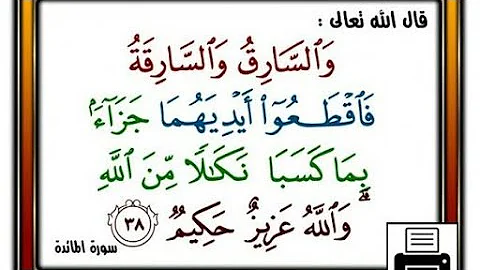 قال الله تعالى :
وَٱلسَّارِقُ وَٱلسَّارِقَةُ
فَٱقْطَعُوٓا۟ أَيْدِيَهُمَا جَزَآءًۢ
بِمَا كَسَبَا نَكَـٰلًا مِّنَ ٱللَّهِ
ۗ وَٱللَّهُ عَزِيزٌ حَكِيمٌ ٣٨
سورة المائدة